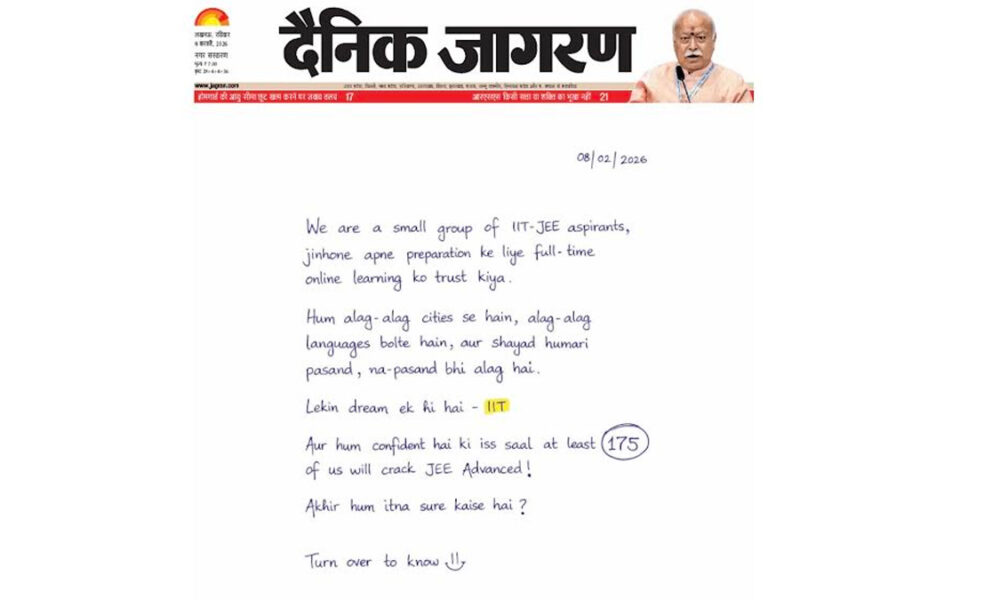 लखनऊ, रविवार
8 फरवरी, 2026
नगर संस्करण
दैनिक जागरण
www.jagran.com
होमगार्ड की आयु सीमा छूट खत्म करने पर जवाब तलब 17
आरएसएस किसी सत्ता या शक्ति का भूखा नहीं 21
08/02/2026
We are a small group of IIT-JEE aspirants,
jinhone apne preparation ke liye full-time
online learning ko trust kiya.
Hum alag-alag cities se hain, alag-alag
languages bolte hain, aur shayad humari
pasand, na-pasand bhi alag hai.
Lekin dream ek hi hai - IIT
Aur hum confident hai ki iss saal at least 175
of us will crack JEE Advanced!
Akhir hum itna sure kaise hai?
Turn over to know